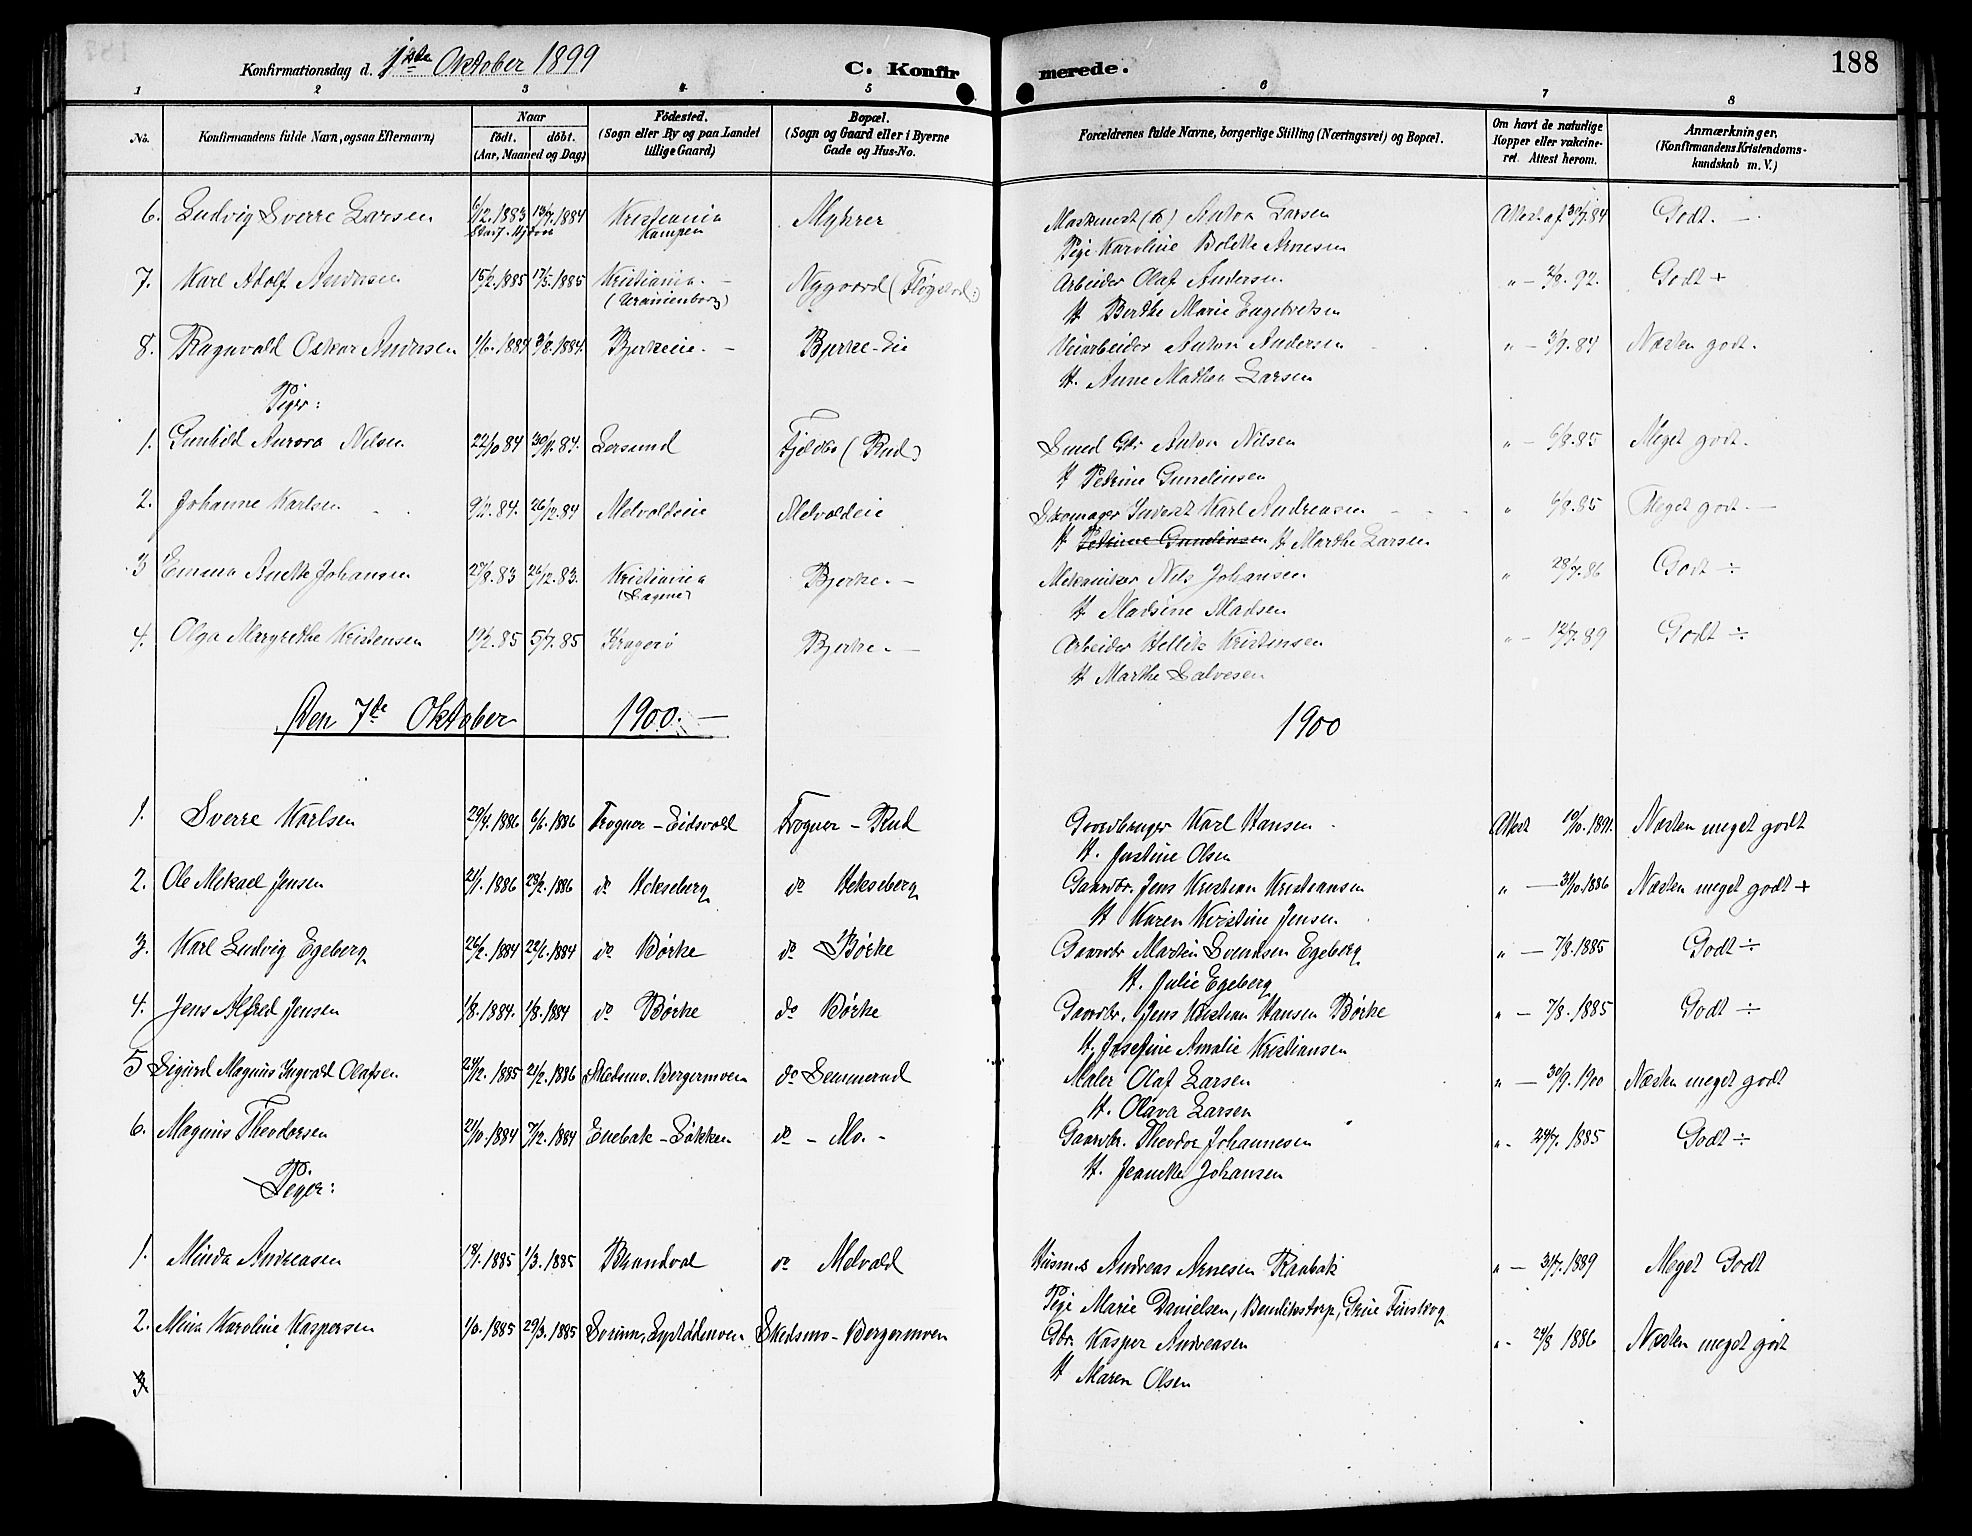 188
Konfirmationsdag d. 1ste Oktober 1899 C. Konfirmerede.
1 2 3 4 5 6 7 8
No. Konfirmandens fulde Navn, ogsaa Efternavn) Naar født. døbt. (Aar, Maaned og Dag) Fødested. (Sogn eller By og paa Landet tillige Gaard) Bopæl. (Sogn og Gaard eller i Byerne Gade og Hus-No. Forældrenes fulde Navne, borgerlige Stilling (Næringsvei) og Bopæl. Om havt de naturlige Kopper eller vakcineret. Attest herom. Anmærkninger. (Konfirmandens Kristendomskundskab m. V.)
6. Ludvig Sverre Larsen 6/12.1883 13/7.1884 Kristiania Myhrer Maskinist (?) Anton Larsen Attest af 30/7.84 Godt. -
Kampen Pige Karoline Bolette Arnesen
7. Karl Adolf Andersen 15/2.1885 17/5.1885 Kristiania. - Nygaard (Fløgstad) Arbeider Olaf Andersen " - 2/9.92. Godt +
(Uranienborg) H. Berthe Marie Engebretsen
8. Ragnvald Oskar Andersen 1/6.1884 3/8.1884. Bjerkeie. - Bjerke-Eie Veiarbeider Anton Andersen " - 3/9.84 Næsten godt.
H. Anne Mathea Larsen
Piger:
1. Gunhild Aurora Nilsen 22/10 84 30/11.84. Sørsund Fjeldbo (Rud) Smed Anton Nilsen " - 6/8.85 Meget godt.
H Petrine Gundensen
2. Johanne Karlsen 9/11.84. 26/12.84 Melvoldeie Melvoldeie Skomager Karl Andreasen " 6/8.85 Meget godt. -
H Petrine Gundensen H Marthe Larsen
3 Emma Anette Johansen 27/8.83 26/12.83. Kristiania Bjerke. - Mekaniker Nils Johansen " 28/7.86 Godt ÷
(Sagene) H Madsine Madsen
4. Olga Margrethe Kristensen 19/2.85 5/7.85 Kragerø Bjerke. - Arbeider Hellik Kristensen " - 12/7.89 Godt ÷
H Marthe Salvesen
Den 7de Oktober 1900. - 1900
1. Sverre Karlsen 29/4.1886 6/6.1886 Frogner - Eidsvold Frogner - Rud Gaardbruger Karl Hansen Attest 19/10.1891. Næsten meget godt
H. Justine Olsen
2. Ole Mikael Jensen 21/1.1886 28/2.1886 do Hekseberg do Hekseberg Gaardbr. Jens Kristian Kristiansen " - 31/10.1886 Næsten meget godt +
H Karen Kristine Jensen
3. Karl Ludvig Egeberg 26/2.1884 22/6.1884 do Børke do Børke Gaardbr Martin Svendsen Egeberg " - 7/8.1885 Godt ÷
H. Julie Egeberg
4. Jens Alfred Jensen 1/8.1884. 1/8.1884 do Børke do Børke Gaardbr. Jens Kristian Hansen Børke " - 7/8.1885 Godt ÷
H. Josefine Amalie Kristiansen
5 Sigurd Magnus Ingvald Olafsen 29/12.1885 21/2.1886 Skedsmo. Bergermoen do Lemmerud Maler Olaf Larsen " - 30/9.1900 Næsten meget godt
H. Olava Larsen
6. Magnus Theodorsen 21/10.1884 7/12.1884 Enebak - Løkken do - Mo. - Gaardbr. Theodor Johannesen " - 24/7.1885 Godt ÷
H. Jeanette Johansen
Piger:
1. Minda Andreasen 18/1.1885 1/3.1885 Brandval do Melvold Husmd Andreas Arnesen Raabak " - 31/7.1889 Meget Godt
Pige Marie Danielsen, Bendikstorp, Grue Finskog
2. Mina Karoline Kaspersen 1/3.1885 29/3.1885 Sørum, Skedsmo - Bergermoen Gbr. Kasper Andreasen " - 24/8 1886 Næsten meget godt
H Maren Olsen
3